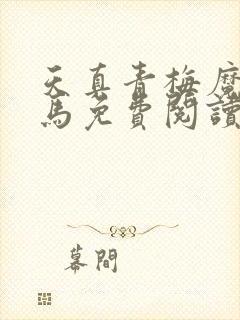 天真青梅魔
馬免費閱讀
幕間